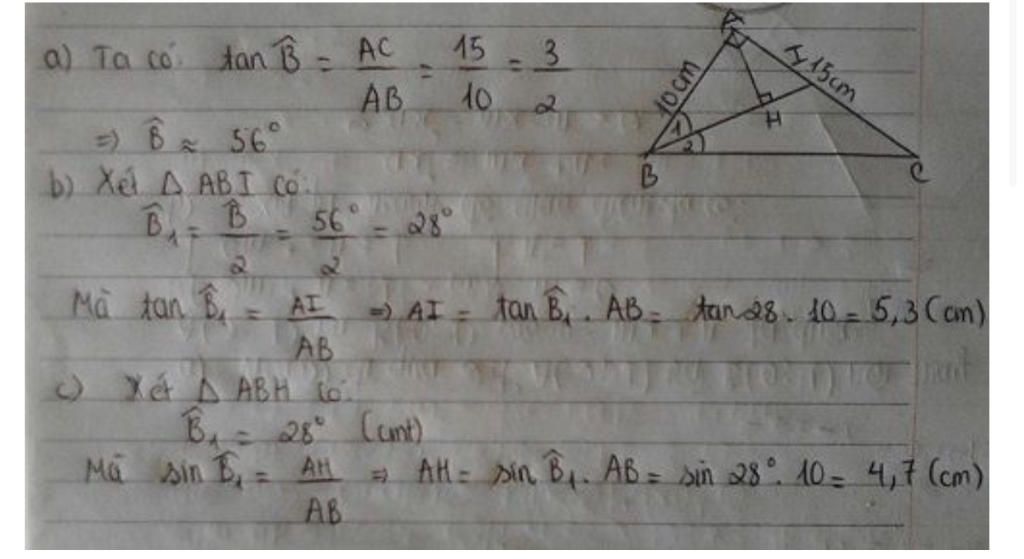 a) Ta có: tan B̂ = AC/AB = 15/10 = 3/2
=> B̂ ≈ 56°
b) Xét Δ ABI có:
B̂₁ = B̂/2 = 56°/2 = 28°
Mà tan B̂₁ = AI/AB => AI = tan B̂₁ . AB = tan 28 . 10 = 5,3 (cm)
c) Xét Δ ABH có:
B̂₁ = 28° (cmt)
Mà sin B̂₁ = AH/AB => AH = sin B̂₁ . AB = sin 28° . 10 = 4,7 (cm)
A
10cm
I 15cm
H
1
2
B
C